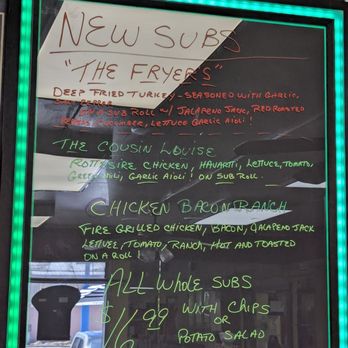 NEW SUBS
"THE FRYERS"
DEEP FRIED TURKEY - SEASONED WITH GARLIC,
PEPPER
ON A SUB ROLL W/ JALAPENO JACK, RED ROASTED
CUCUMBER, LETTUCE GARLIC AIOLI!
THE COUSIN LOUISE
CHICKEN, HAVARTI, LETTUCE, TOMATO,
GARLIC AIOLI! ON SUB ROLL.
CHICKEN BACON RANCH
FIRE GRILLED CHICKEN, BACON, JALAPENO JACK
LETTUCE, TOMATO, RANCH, HOT AND TOASTED
ON A ROLL!
ALL WHOLE SUBS
$16.99 WITH CHIPS
OR
POTATO SALAD